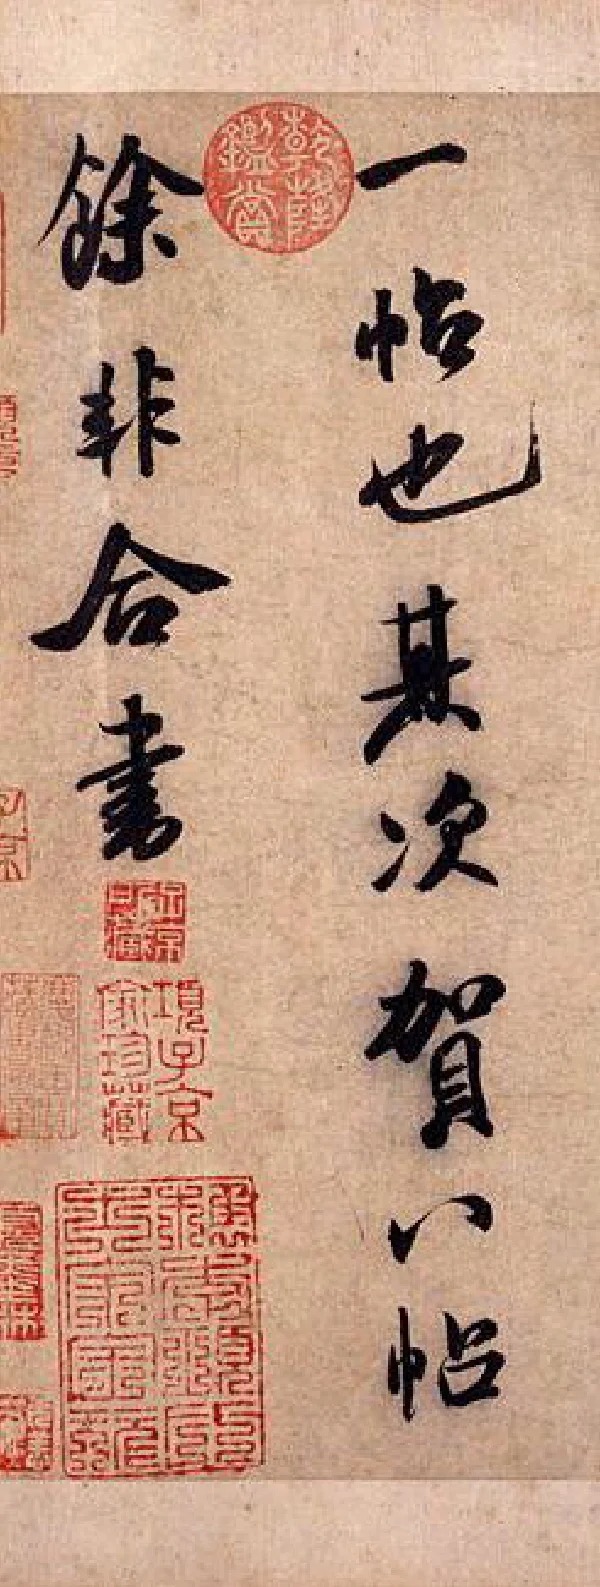 一帖也其次賀八帖
餘非合書
乾隆鑑賞
項子京家珍藏